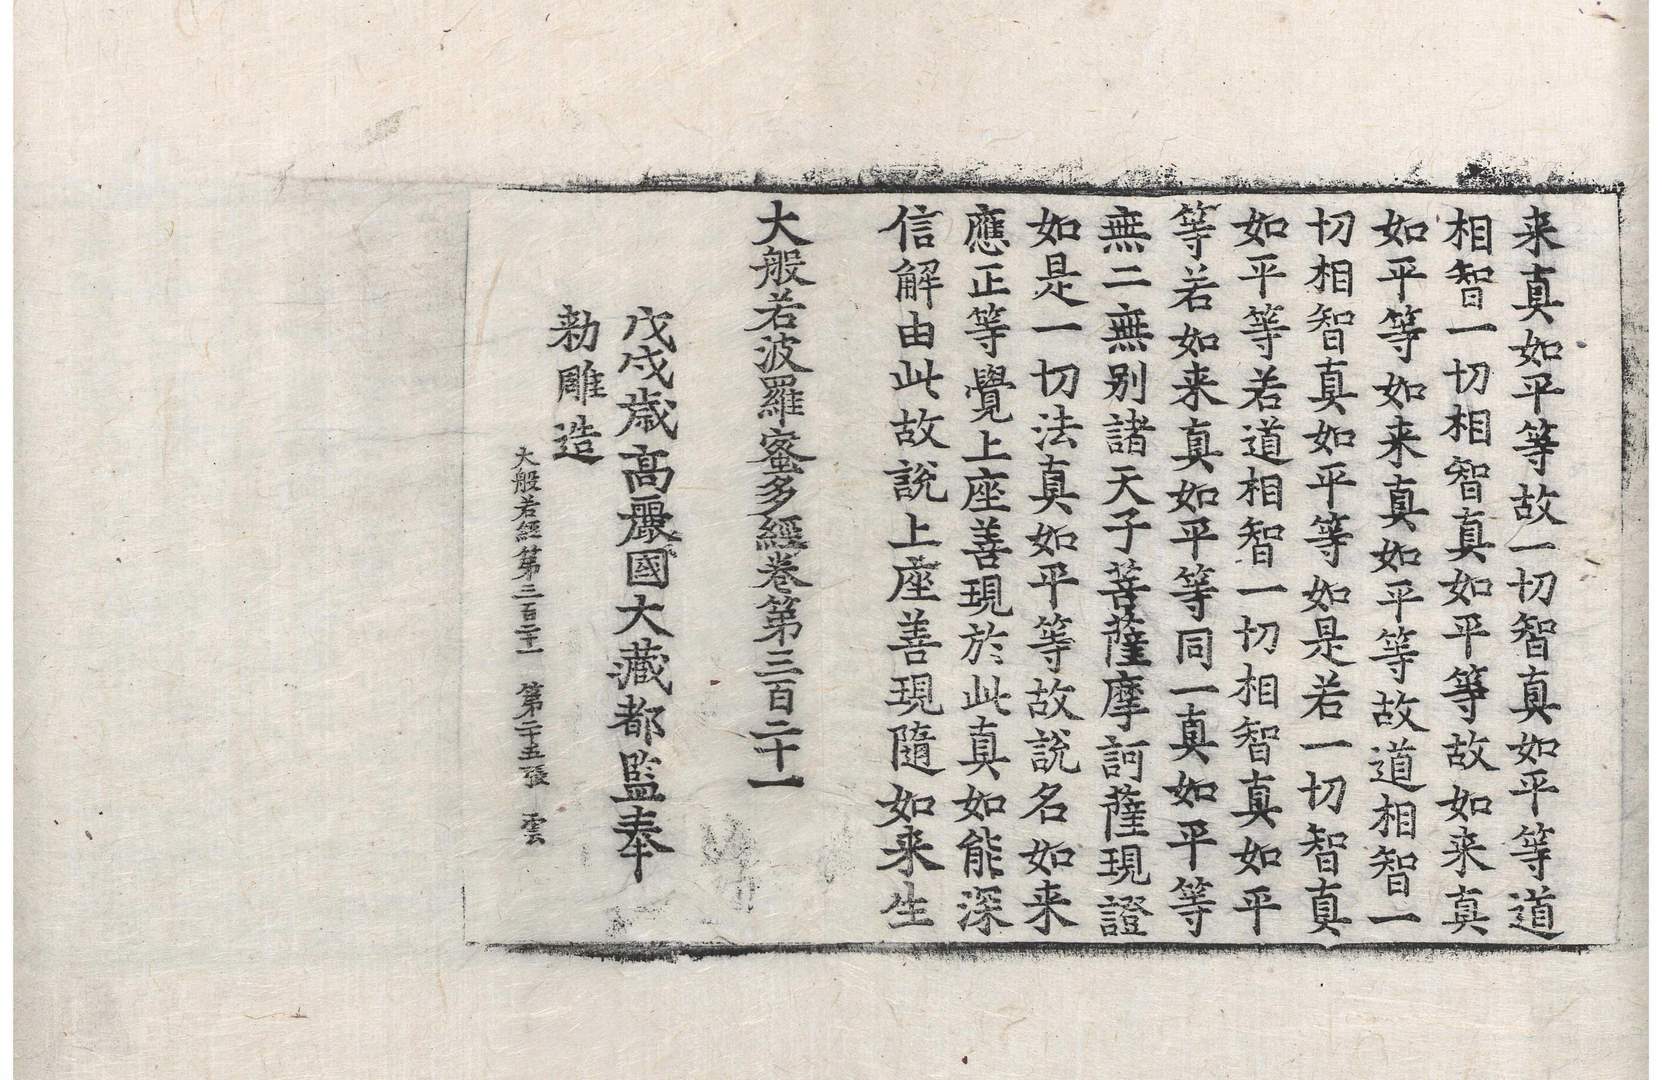 来真如平等故一切智真如平等道
相智一切相智真如平等故如来真
如平等如来真如平等故道相智一
切相智真如平等如是若一切智真
如平等若道相智一切相智真如平
等若如来真如平等同一真如平等
無二無別諸天子菩薩摩訶薩現證
如是一切法真如平等故說名如来
應正等覺上座善現於此真如能深
信解由此故說上座善現隨如来生
大般若波羅蜜多經卷第三百二十一
戊戌歲高麗國大藏都監奉
勑雕造
大般若經第三百二十一 第二十五張 雲